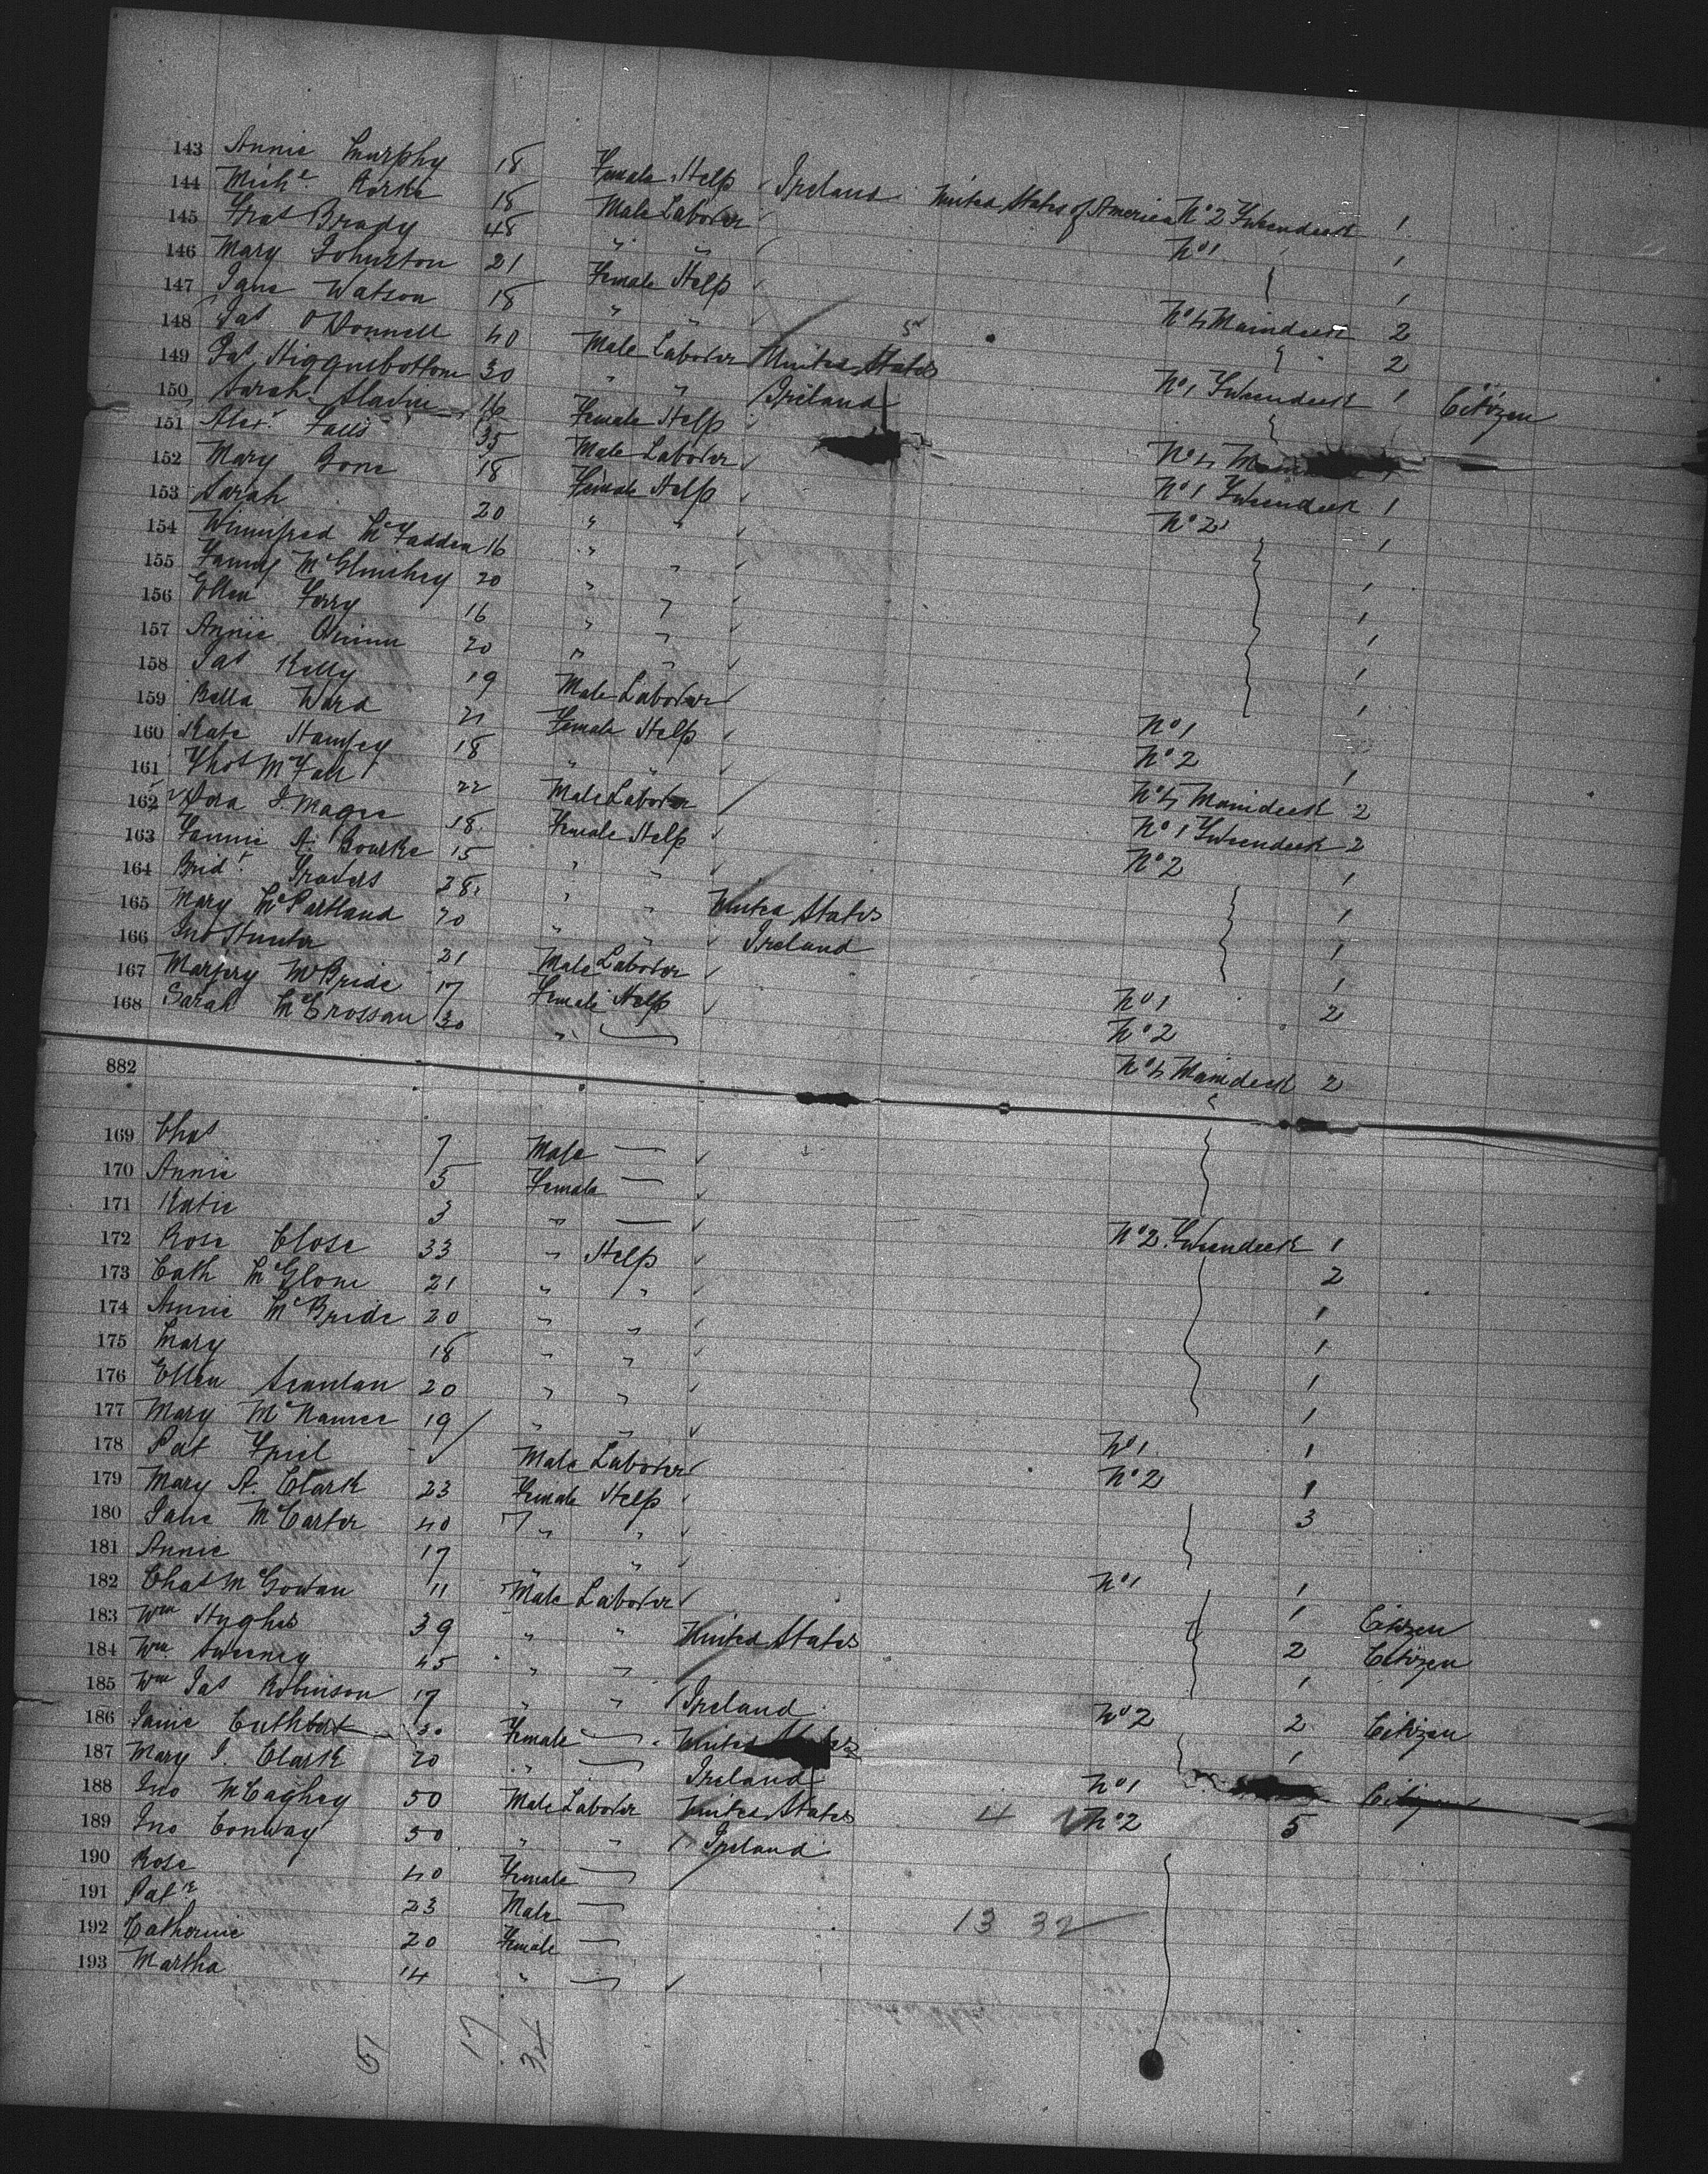 143 Annie Murphy 18 Female Help Ireland United States of America No 2 Tweendeck 1
144 Michl Rorke 18 Male Laborer No 1 1
145 Fras Brady 48 " " 1
146 Mary Johnston 21 Female Help No 4 Maindeck 2
147 Jane Watson 18 " " 2
148 Jas O'Donnell 40 Male Laborer United States No 1 Tweendeck 1 Citizen
149 Jas Higginbottom 30 " " Ireland
150 Sarah Slavin 16 Female Help No 4
151 Alexr Falls 35 Male Laborer No 1 Tweendeck 1
152 Mary Bone 18 Female Help No 2 1
153 Sarah 20 " " 1
154 Winnifred McFadden 16 " " 1
155 Fanny McGlinchey 20 " " 1
156 Ellen Ferry 16 " " 1
157 Annie Quinn 20 " " 1
158 Jas Kelly 19 Male Laborer No 1
159 Bella Ward 21 Female Help No 2 1
160 Kate 18 " " No 4 Maindeck 2
161 Thos McFall 22 Male Laborer No 1 Tweendeck 2
162 Dora J. Magee 18 Female Help No 2 1
163 Fannie A. Bourke 15 " " 1
164 Bridt Travers 28 " " United States 1
165 Mary McPartland 20 " " Ireland 1
166 Jno Hunter 21 Male Laborer No 1 2
167 Marjery McBride 17 Female Help No 2
168 Sarah McCrossan 30 " No 4 Maindeck 2
882
169 Chas 7 Male
170 Annie 5 Female
171 Katie 3 " No 2 Tweendeck 1
172 Rose Close 33 " Help 2
173 Cath McGlone 21 " " 1
174 Annie McBride 20 " " 1
175 Mary 18 " " 1
176 Ellen Scanlan 20 " " 1
177 Mary McNamee 19 " " No 1 1
178 Pat Friel Male Laborer No 2 1
179 Mary A. Clark 23 Female Help 3
180 Jane McCarter 40 " "
181 Annie 17 " " No 1 1
182 Chas McGowan 11 Male Laborer 1 Citizen
183 Wm Hughes 39 " " United States 2 Citizen
184 Wm Sweeney 45 " " 1
185 Wm Jas Robinson 17 " " Ireland No 2 2 Citizen
186 Janie Cuthbert 30 Female United States 1
187 Mary J. Clark 20 " Ireland No 1 Citizen
188 Jno McCaghey 50 Male Laborer United States 4 No 2 5
189 Jno Conway 50 " " Ireland
190 Rose 40 Female
191 Patk 23 Male 13 32
192 Catherine 20 Female
193 Martha 14 "
51 17 34